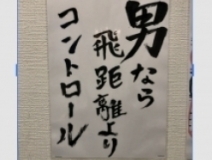 男なら
飛距離より
コントロール